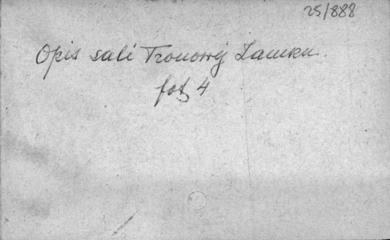 25/888
Opis sali Tronowej Zamku.
fot. 4